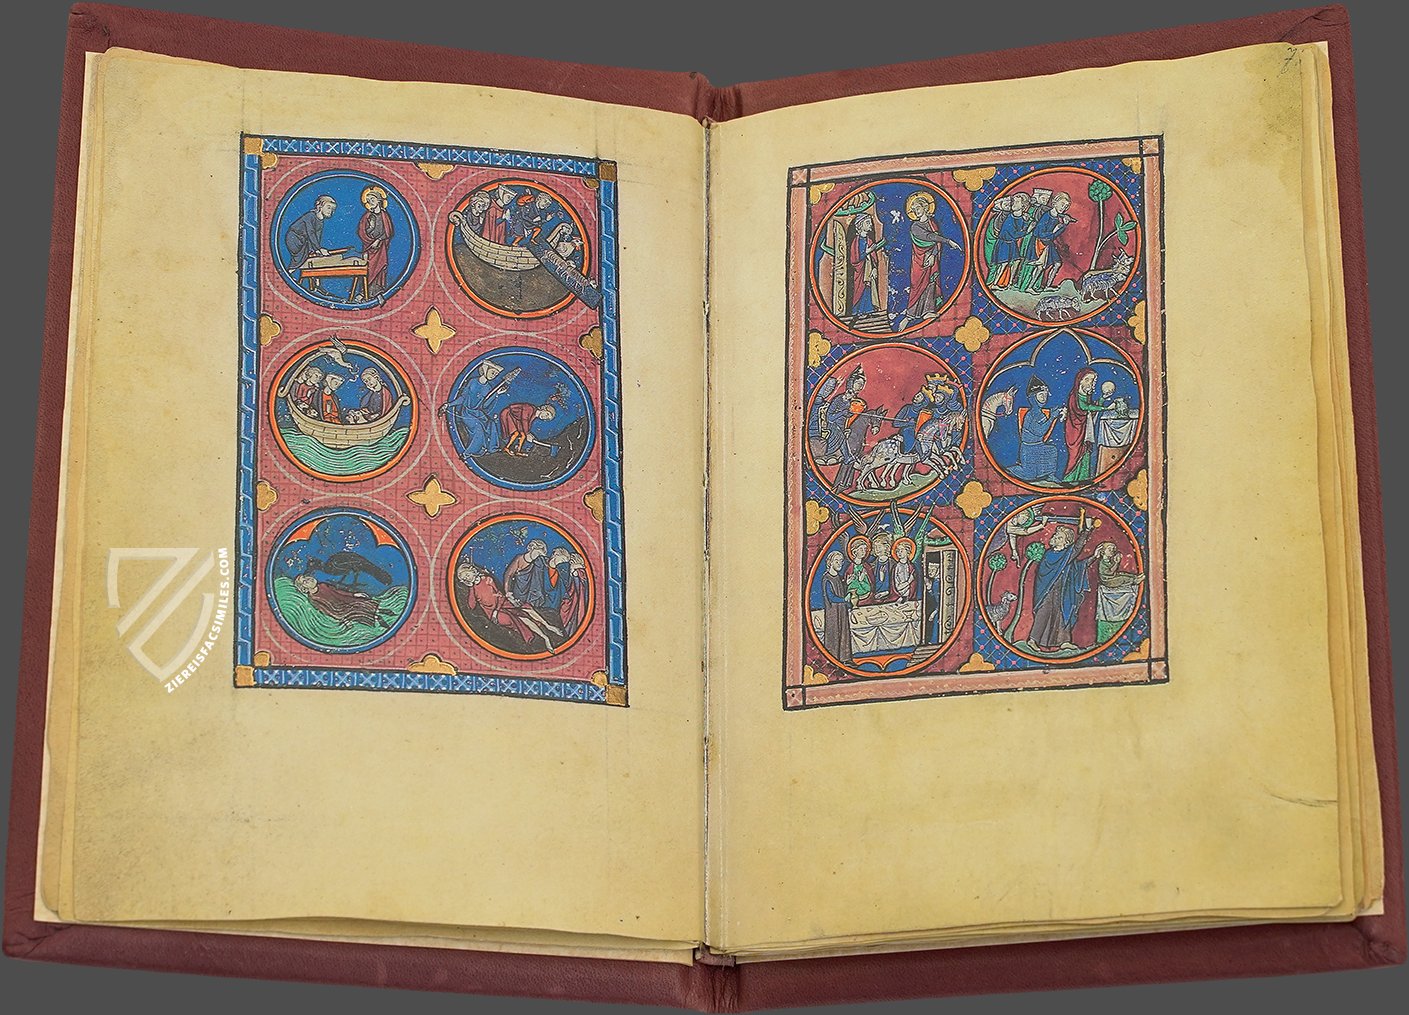 7.
ZIEREISFACSIMILES.COM